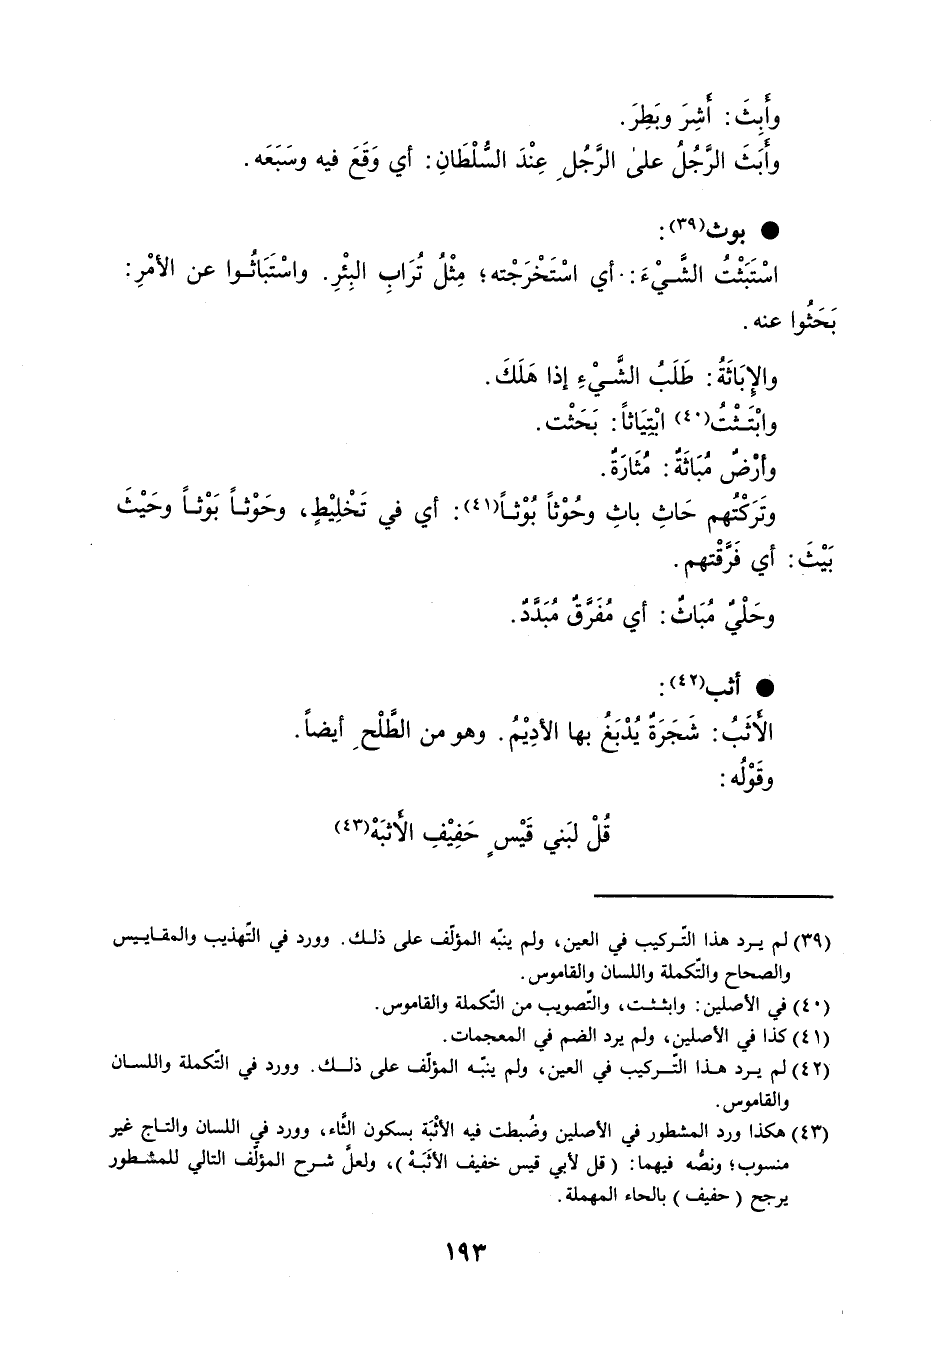 وأَبِثَ: أَشِرَ وبَطِرَ.
وأَبَثَ الرَّجُلُ علىٰ الرَّجُلِ عِنْدَ السُّلْطَانِ: أي وَقَعَ فيه وسَبَعَه.
● بوث(٣٩):
اسْتَبَثْتُ الشَّيْءَ: أي اسْتَخْرَجْته؛ مِثْلُ تُرَابِ البِئْرِ. واسْتَبَاثُوا عن الأمْرِ:
بَحَثُوا عنه.
والإِبَاثَةُ: طَلَبُ الشَّيْءِ إذا هَلَكَ.
وابْتَثْتُ(٤٠) ابْتِيَاثاً: بَحَثْت.
وأرْضٌ مُبَاثَةٌ: مُثَارَةٌ.
وتَرَكْتُهم حَاثِ باثِ وحُوْثاً بُوْثاً(٤١): أي في تَخْلِيْطٍ، وحَوْثاً بَوْثاً وحَيْثَ
بَيْثَ: أي فَرَّقْتهم.
وحَلْيٌ مُبَاثٌ: أي مُفَرَّقٌ مُبَدَّدٌ.
● أثب(٤٢):
الأَثَبُ: شَجَرَةٌ يُدْبَغُ بها الأدِيْمُ. وهو من الطَّلْحِ أيضاً.
وقَوْلُه:
قُلْ لبَني قَيْسٍ حَفِيْفِ الأَثَبَهْ(٤٣)
(٣٩) لم يرد هذا التّركيب في العين، ولم ينبّه المؤلّف على ذلك. وورد في التّهذيب والمقاييس
والصحاح والتّكملة واللسان والقاموس.
(٤٠) في الأصلين: وابثثت، والتّصويب من التّكملة والقاموس.
(٤١) كذا في الأصلين، ولم يرد الضم في المعجمات.
(٤٢) لم يرد هذا التّركيب في العين، ولم ينبّه المؤلّف على ذلك. وورد في التّكملة واللسان
والقاموس.
(٤٣) هكذا ورد المشطور في الأصلين وضُبطت فيه الأثْبَة بسكون الثّاء، وورد في اللسان والتاج غير
منسوب؛ ونصُّه فيهما: (قل لأبي قيس خفيف الأثَبَهْ)، ولعلَّ شرح المؤلّف التالي للمشطور
يرجح (حفيف) بالحاء المهملة.
١٩٣